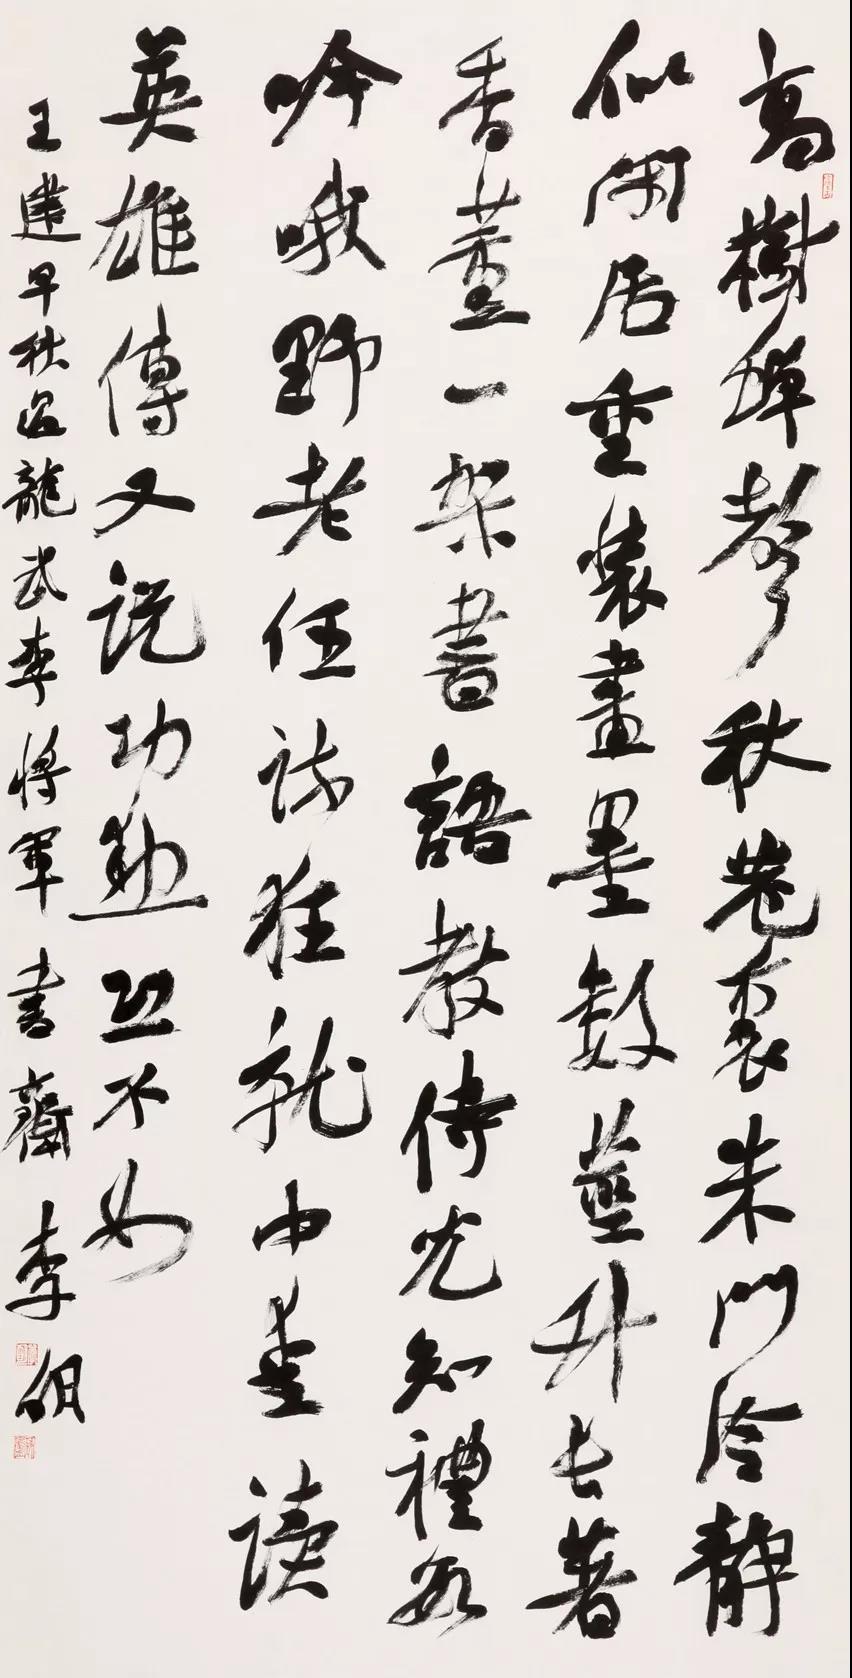 高樹蟬聲秋巷裏朱門冷靜
似閑居重裝畫墨數莖竹長著
香薰一架書語教侍兒知禮數
吟哦野老任疏狂就中愛讀
英雄傳又説功勳恐不如
王建早秋過龍武李將軍書齋 李